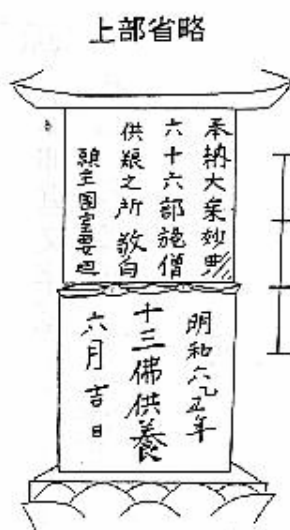 上部省略
奉納大乗妙典
六十六部施僧
供粮之所 敬白
願主
明和六乙丑年
十三佛供養
六月吉日